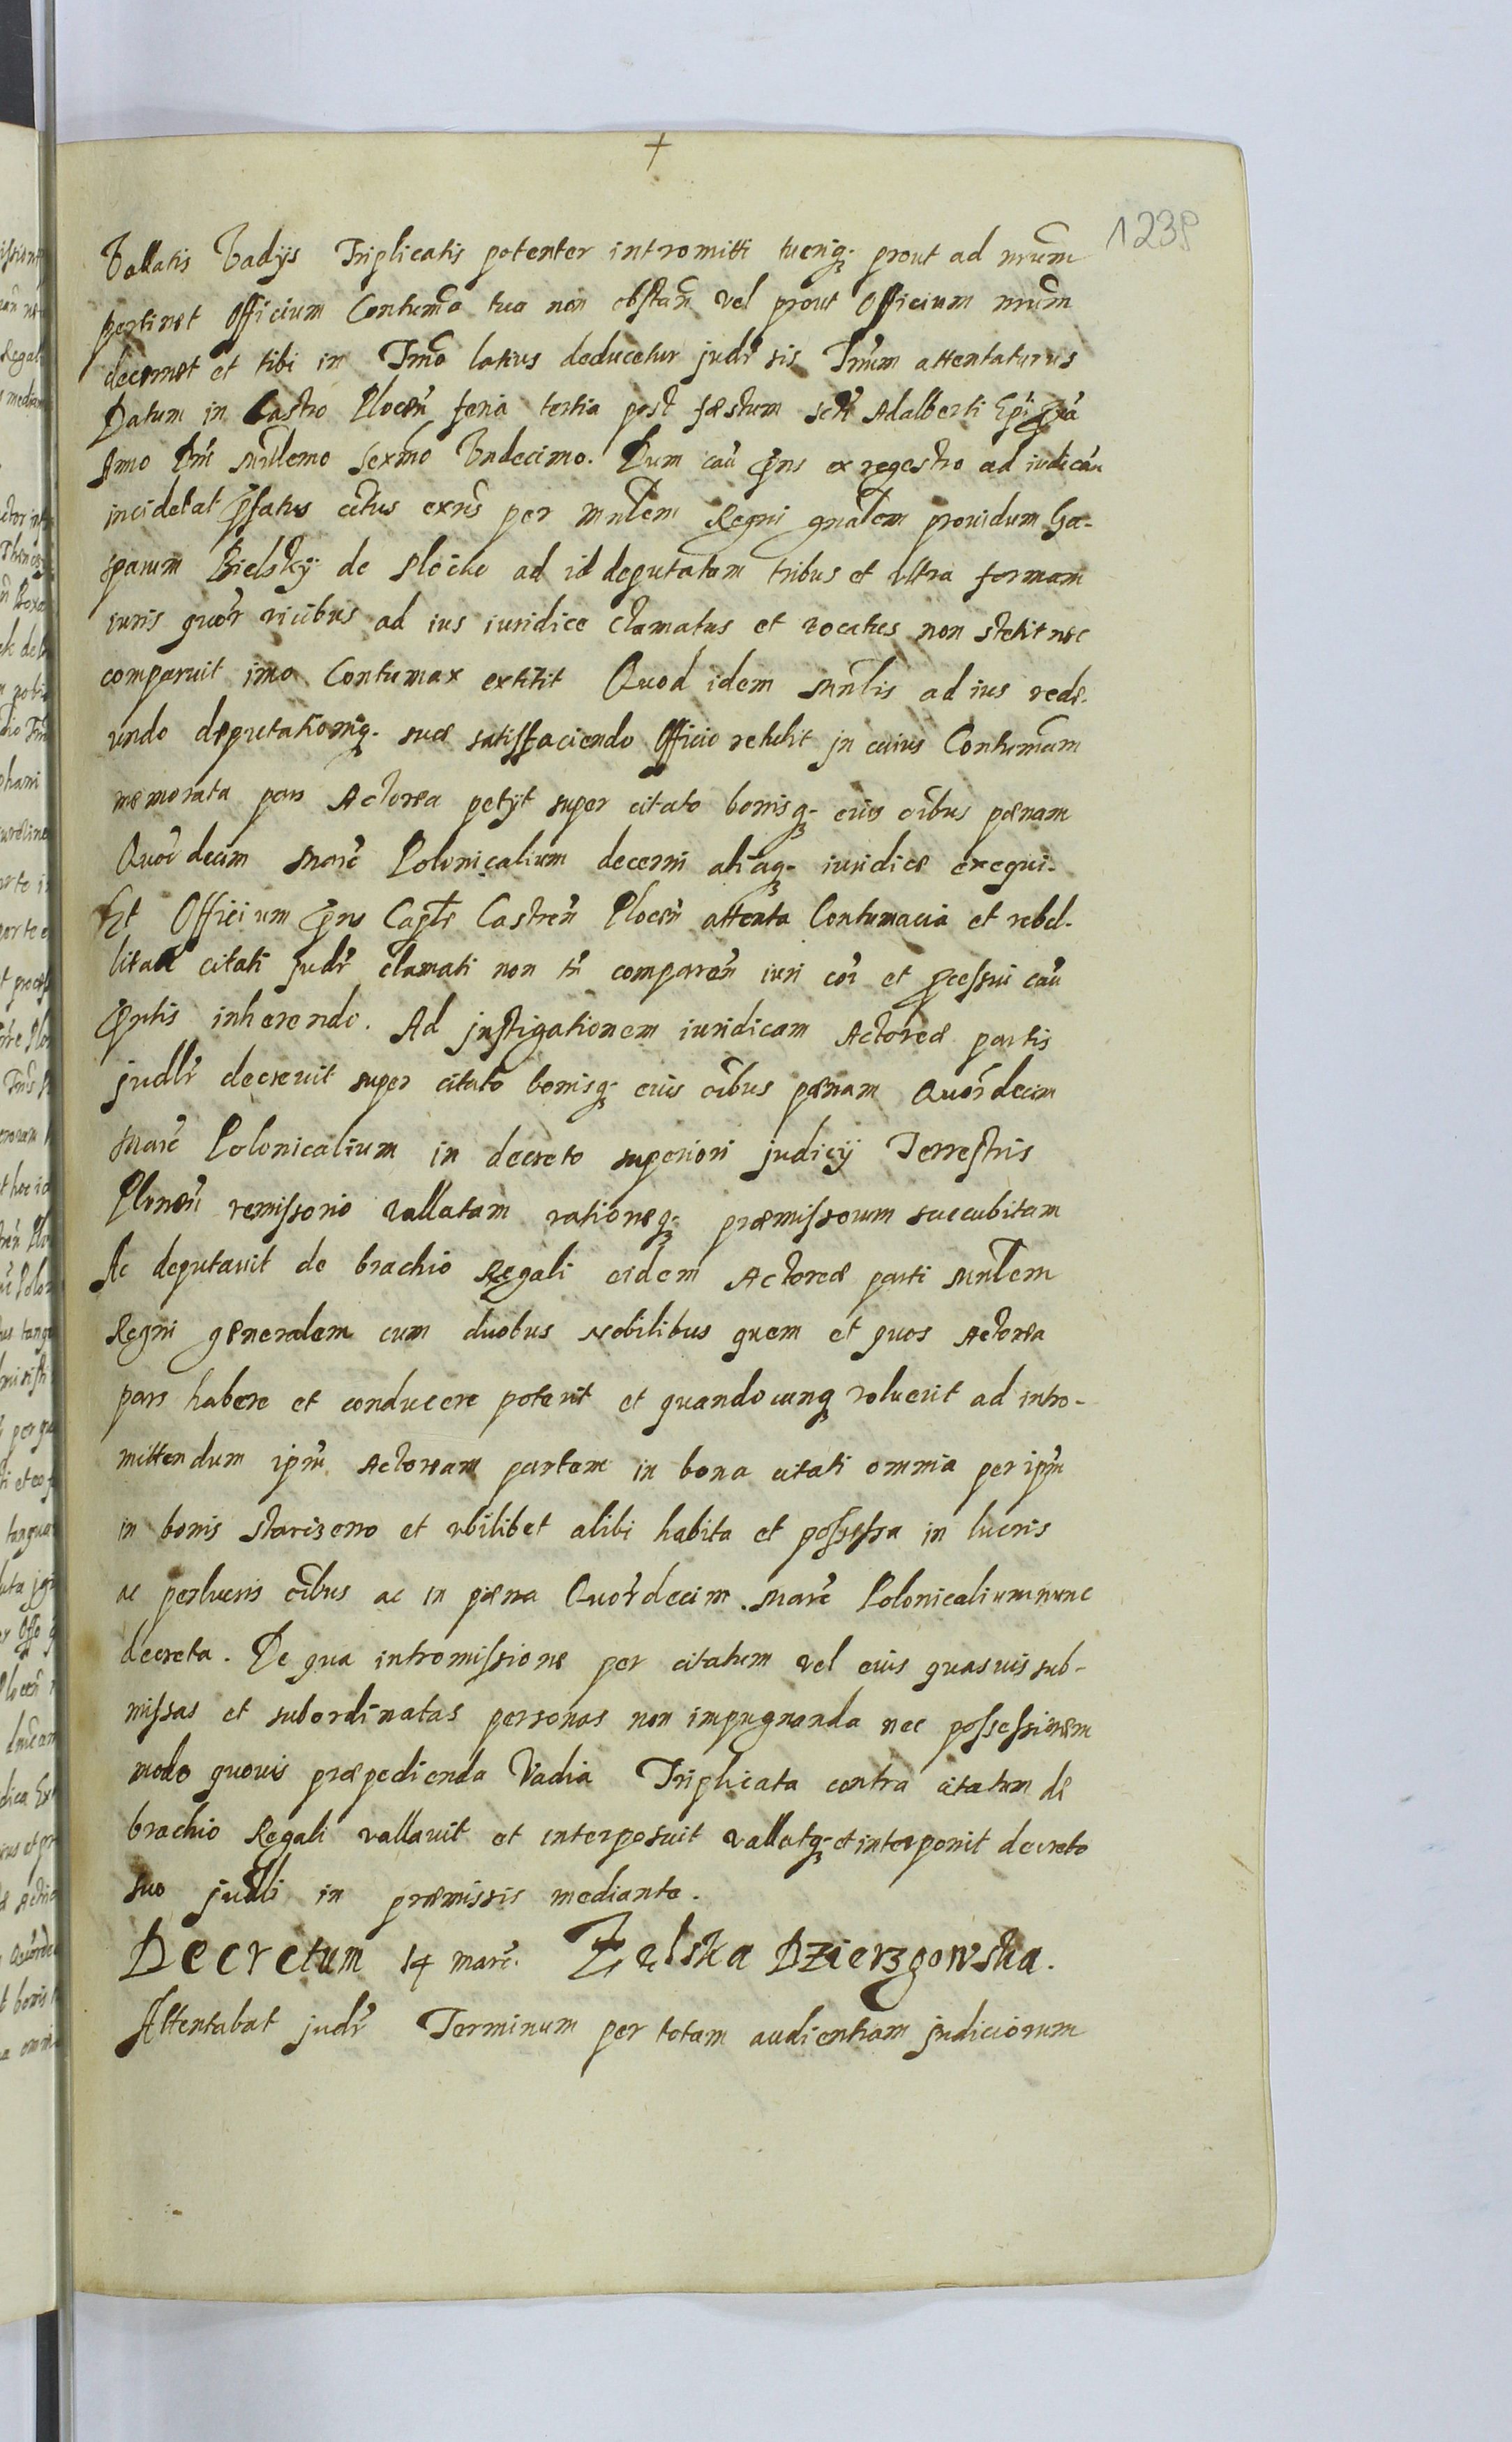 +
1238
Vallatis Vadijs Triplicatis potenter intromitti tueriq3 prout ad nrum
pertinet Officium Contuma tua non obstan vel prout Officium nrum
decernet et tibi in Tmo latius deducetur judr sis Tmum attentaturus
Datum in Castro Plocen feria tertia post festum scti Adalberti Epi
Anno Dni Millemo sexmo Vndecimo. Dum cau pns ex regestro ad iudican
incidebat pfatus citus exns per Mnlem Regni gnalem prouidum Ga-
sparum Bielsky de Plocko ad id deputatum tribus et vltra formam
iuris quor vicibus ad ius iuridice clamatus et vocatus non stetit nec
comparuit imo Contumax extitit Quod idem Mnlis ad ius rede-
undo deputationiq3 suæ satisfaciendo Officio retulit in cuius Contumam
memorata pars Actorea petijt super citato bonisq3 eius oibus pænam
Quordecim Marc Polonicalium decerni aliaq3 iuridice exequi.
Et Officium pns Captle Castren Plocen attenta Contumacia et rebel-
litate citati judr clamati non tn comparen iuri coi et pcessui cau
pntis inherendo. Ad justigationem iuridicam Actoreæ partis
judlr decreuit super citato bonisq3 eius oibus pænam Quordecim
Marc Polonicalium in decreto superiori judicij Terrestris
Plonen remissorio vallatam rationeq3 præmissorum succubitam
Ac deputauit de brachio Regali eidem Actoreæ parti Mnlem
Regni generalem cum duobus Nobilibus quem et quos Actorea
pars habere et conducere poterit et quandocunq3 voluerit ad intro-
mittendum ipm Actoream partem in bona citati omnia per ipm
in bonis Starizeno et vbilibet alibi habita et possessa in lucris
ac perlucris oibus ac in pæna Quordecim Marc Polonicalium nunc
decreta. De qua intromissione per citatum vel eius quasuis sub-
missas et subordinatas personas non impugnanda nec possessionem
modo quouis præpedienda Vadia Triplicata contra citatum de
brachio Regali vallauit et interposuit vallatq3 et interponit decreto
suo judli in præmissis mediante.
Decretum 14 marc. Zelska Dzierzgowska.
Attentabat judr Terminum per totam audientiam judiciorum